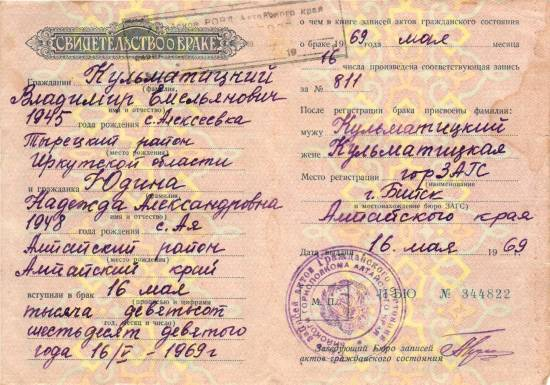 СВИДЕТЕЛЬСТВО О БРАКЕ
Гражданин Кульматицкий
(фамилия,
Владимир Емельянович
имя и отчество)
1945 года рождения с. Алексеевка
Тырецкий район
(место рождения)
Иркутской области
и гражданка Юдина
(фамилия,
Надежда Александровна
имя и отчество)
1948 года рождения с. Ая
Алтайский район
(место рождения)
Алтайский край
вступили в брак 16 мая
(прописью и цифрами
тысяча девятьсот
год, месяц и число)
шестьдесят девятого
года 16/V - 1969 г
о чем в книге записей актов гражданского состояния
о браке 1969 года мая месяца
16 числа произведена соответствующая запись
за № 811
После регистрации брака присвоены фамилии:
мужу Кульматицкий
жене Кульматицкая
Место регистрации горЗАГС
(наименование
г. Бийск
и местонахождение бюро ЗАГС)
Алтайского края
Дата выдачи 16 мая 1969
М. П.
II-БЮ № 344822
Заведующий Бюро записей
актов гражданского состояния